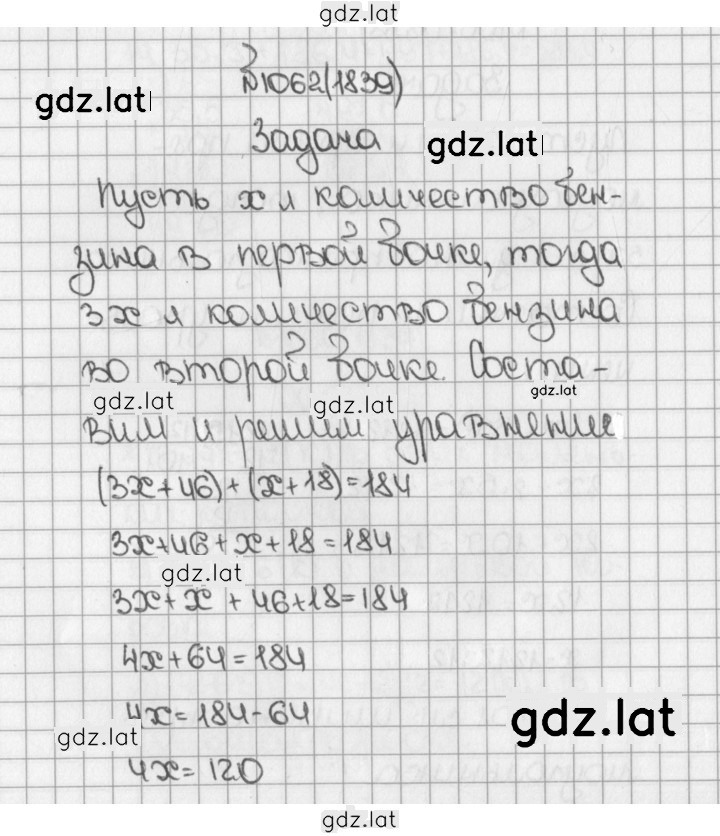 gdz.lat
№1062(1839)
gdz.lat
Задача
gdz.lat
Пусть x л количество бен-
зина в первой бочке, тогда
3x л количество бензина
во второй бочке. Соста-
gdz.lat
gdz.lat
gdz.lat
вим и решим уравнение
(3x+46)+(x+18)=184
3x+46+x+18=184
gdz.lat
3x+x+46+18=184
4x+64=184
4x=184-64
gdz.lat
gdz.lat
4x=120
gdz.lat